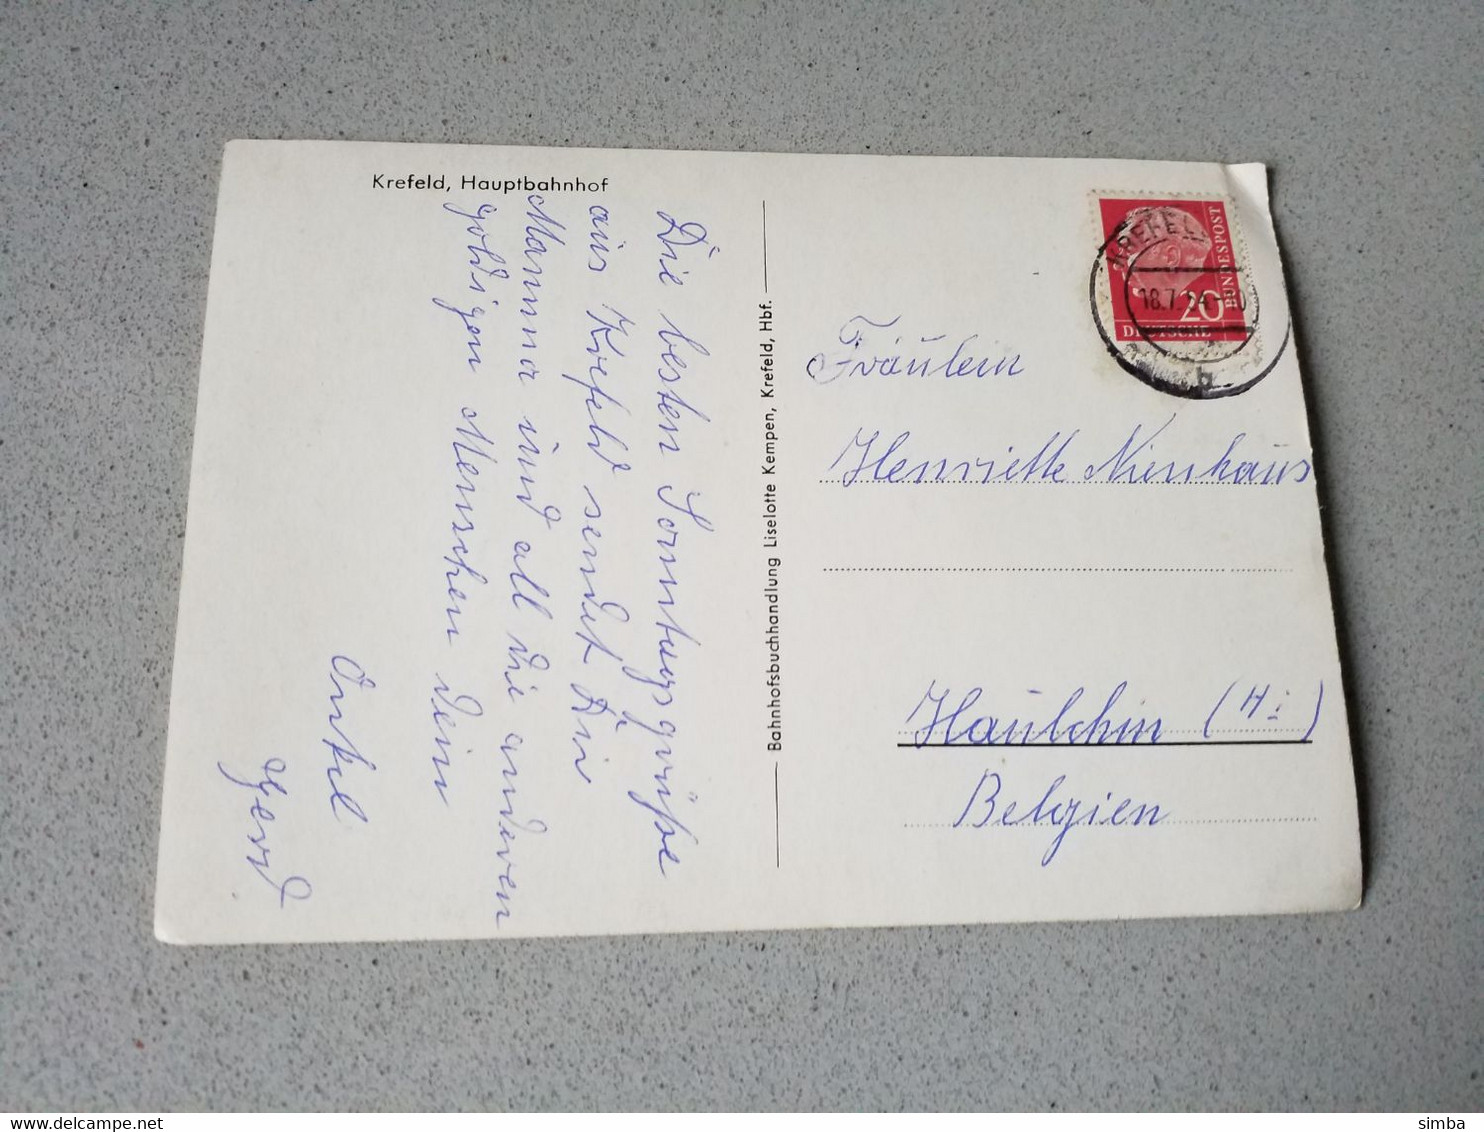 Krefeld, Hauptbahnhof
Die besten Sonntagsgrüße
aus Krefeld sendet Dir
Mamma und all die anderen
goldigen Menschen dein
Onkel
Gerd.
Bahnhofsbuchhandlung Liselotte Kempen, Krefeld, Hbf.
KREFEL
18.7. 54-
b
20
DEUTSCHE
BUNDESPOST
Fräulein
Henriette Nienhaus
Haulchin (H:)
Belgien
delcampe.net
simba